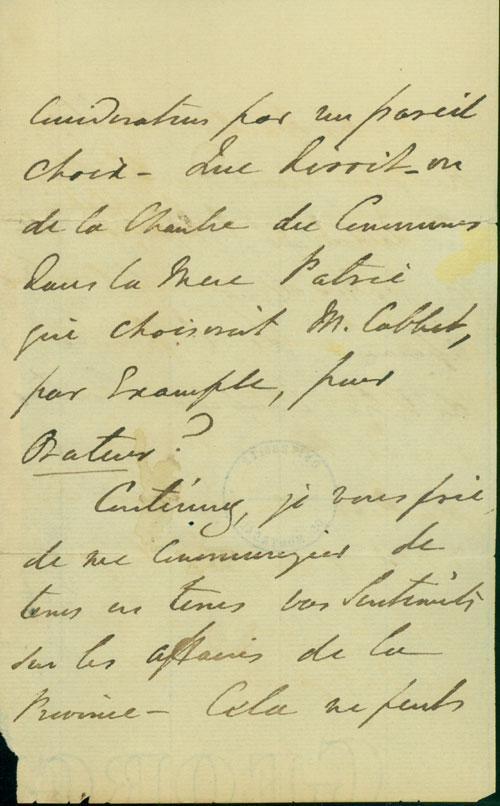 considerations par un pareil
choix - Que diroit-on
de la Chambre des Communes
dans la Mere Patrie
qui choisiroit M. Cobbet,
par Example, pour
Orateur?
Continuez, je vous prie
de me communiquer de
tems en tems vos Sentimens
sur les affaires de la
Province - Cela ne peut